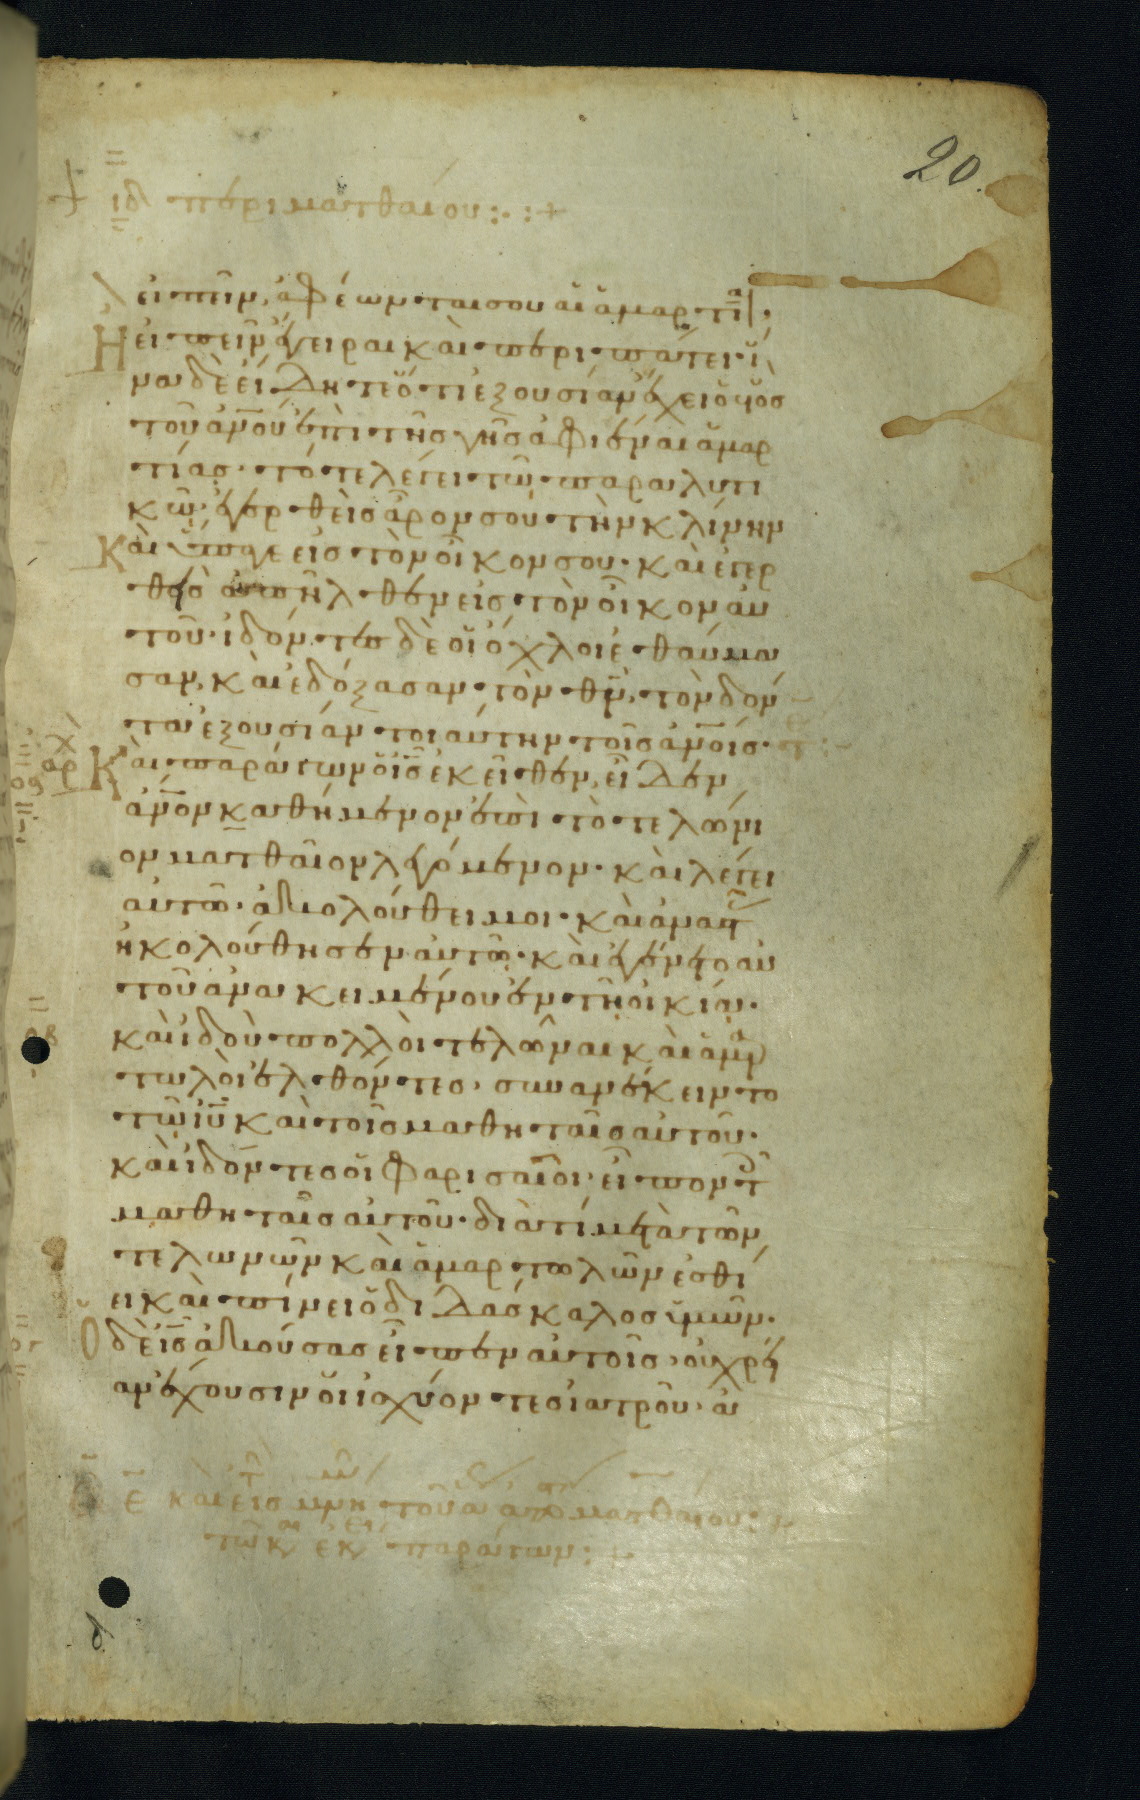 20.
+ ιδ περι ματθαιου :· : +
εἰπεῖν, ἀφέωνταί σου αἱ ἁμαρτί(αι)·
Ἢ εἰπεῖν ἔγειραι καὶ περιπάτει· ἵ
να δὲ εἰδῆτε ὅτι ἐξουσίαν ἔχει ὁ υἱὸσ
τοῦ ἀν̅ου ἐπὶ τῆσ γῆσ ἀφιέναι ἁμαρ
τίασ· τότε λέγει τῶ παραλυτι
κῶ· ἐγερθεὶσ ἆρόν σου τὴν κλίνην
Καὶ ὕπαγε εἰσ τὸν οἶκόν σου· καὶ ἐγερ
θεὶσ ἀπῆλθεν εἰσ τὸν οἶκον αὐ
τοῦ· ἰδόντεσ δὲ οἱ ὄχλοι ἐθαύμα
σαν, καὶ ἐδόξασαν τὸν θν̅, τὸν δόν
τα ἐξουσίαν τοιαύτην τοῖσ ἀν̅οισ·
Καὶ παράγων ὁ ις̅ ἐκεῖθεν, εἶδεν
ἀν̅ον καθήμενον ἐπὶ τὸ τελώνι
ον ματθαῖον λεγόμενον· καὶ λέγει
αὐτῶ· ἀκολούθει μοι· καὶ ἀναστ(ὰσ)
ἠκολούθησεν αὐτῶ· καὶ ἐγένετο αὐ
τοῦ ἀνακειμένου ἐν τῆ οἰκία·
καὶ ἰδοὺ πολλοὶ τελῶναι καὶ ἁμαρ
τωλοὶ ἐλθόντεσ, συνανέκειντο
τῶ ιυ̅ καὶ τοῖσ μαθηταῖσ αὐτοῦ·
καὶ ἰδόντεσ οἱ φαρισαῖοι, εἶπον τ(οῖσ)
μαθηταῖσ αὐτοῦ· διὰ τί μετὰ τῶν
τελωνῶν καὶ ἁμαρτωλῶν ἐσθί
ει καὶ πίνει ὁ διδάσκαλοσ ὑμῶν·
Ὁ δὲ ις̅ ἀκούσασ εἶπεν αὐτοῖσ, οὐ χρεί
αν ἔχουσιν οἱ ἰσχύοντεσ ἰατροῦ, ἀ